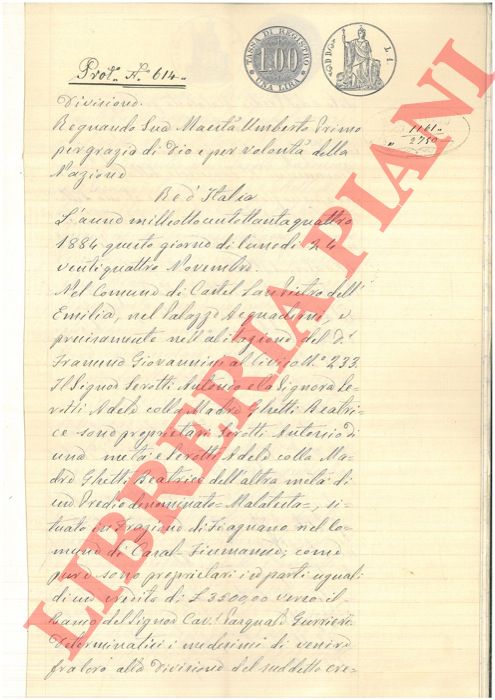 TASSA DI REGISTRO
1.00
UNA LIRA
L 1.
Prot.° N.° 614
1161
2750
Divisione.
Regnando Sua Maestà Umberto Primo
per grazia di Dio e per volontà della
Nazione
Re d'Italia
L'anno milleottocentottantaquattro
1884 questo giorno di lunedì 24
ventiquattro Novembre.
Nel Comune di Castel San Pietro dell'
Emilia, nel Palazzo Acquaderni, e
precisamente nell'abitazione del D.r
Francesco Giovannini al Civico N.° 233.
Il Signor Serotti Antonio e la Signora Se-
rotti Adele colla Madre Ghetti Beatri-
ce sono proprietari Serotti Antonio di
una metà e Serotti Adele colla Ma-
dre Ghetti Beatrice dell'altra metà di
un Predio denominato = Malatesta =, si-
tuato in Frazione di Fiagnano nel Co-
mune di Casal Fiumanese; come
pure sono proprietari in parti uguali
di un credito di L 3500,00 verso il
Banco del Signor Cav. Pasquale Gurrieri.
Determinatisi i medesimi di venire
fra loro alla Divisione del suddetto cre-
LIBRERIA PIANI